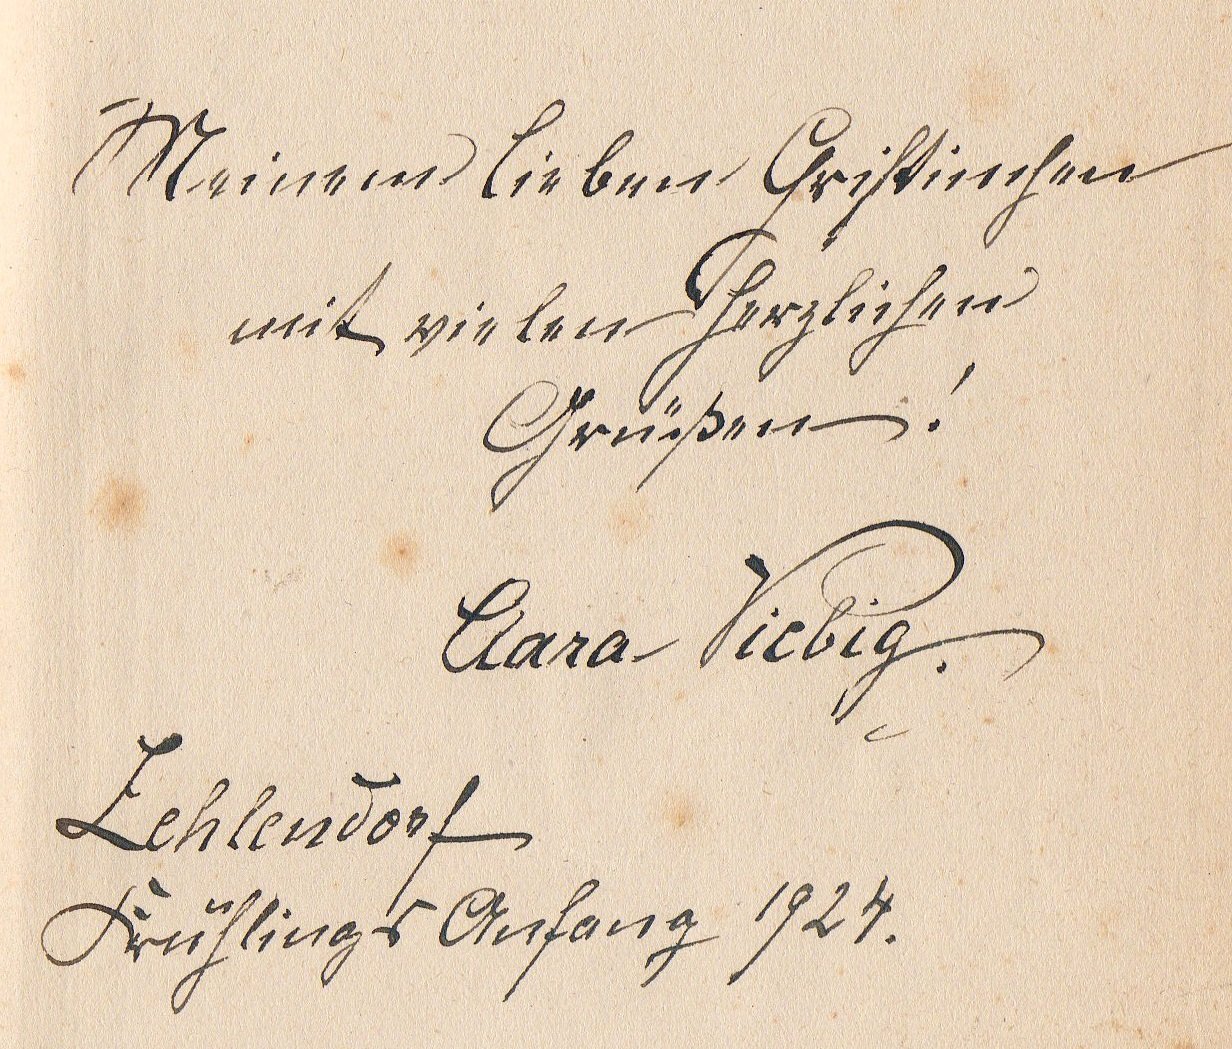 Meinem lieben Cristinchen
mit vielen herzlichen
Grüßen!
Clara Viebig.
Zehlendorf
Frühlings Anfang 1924.